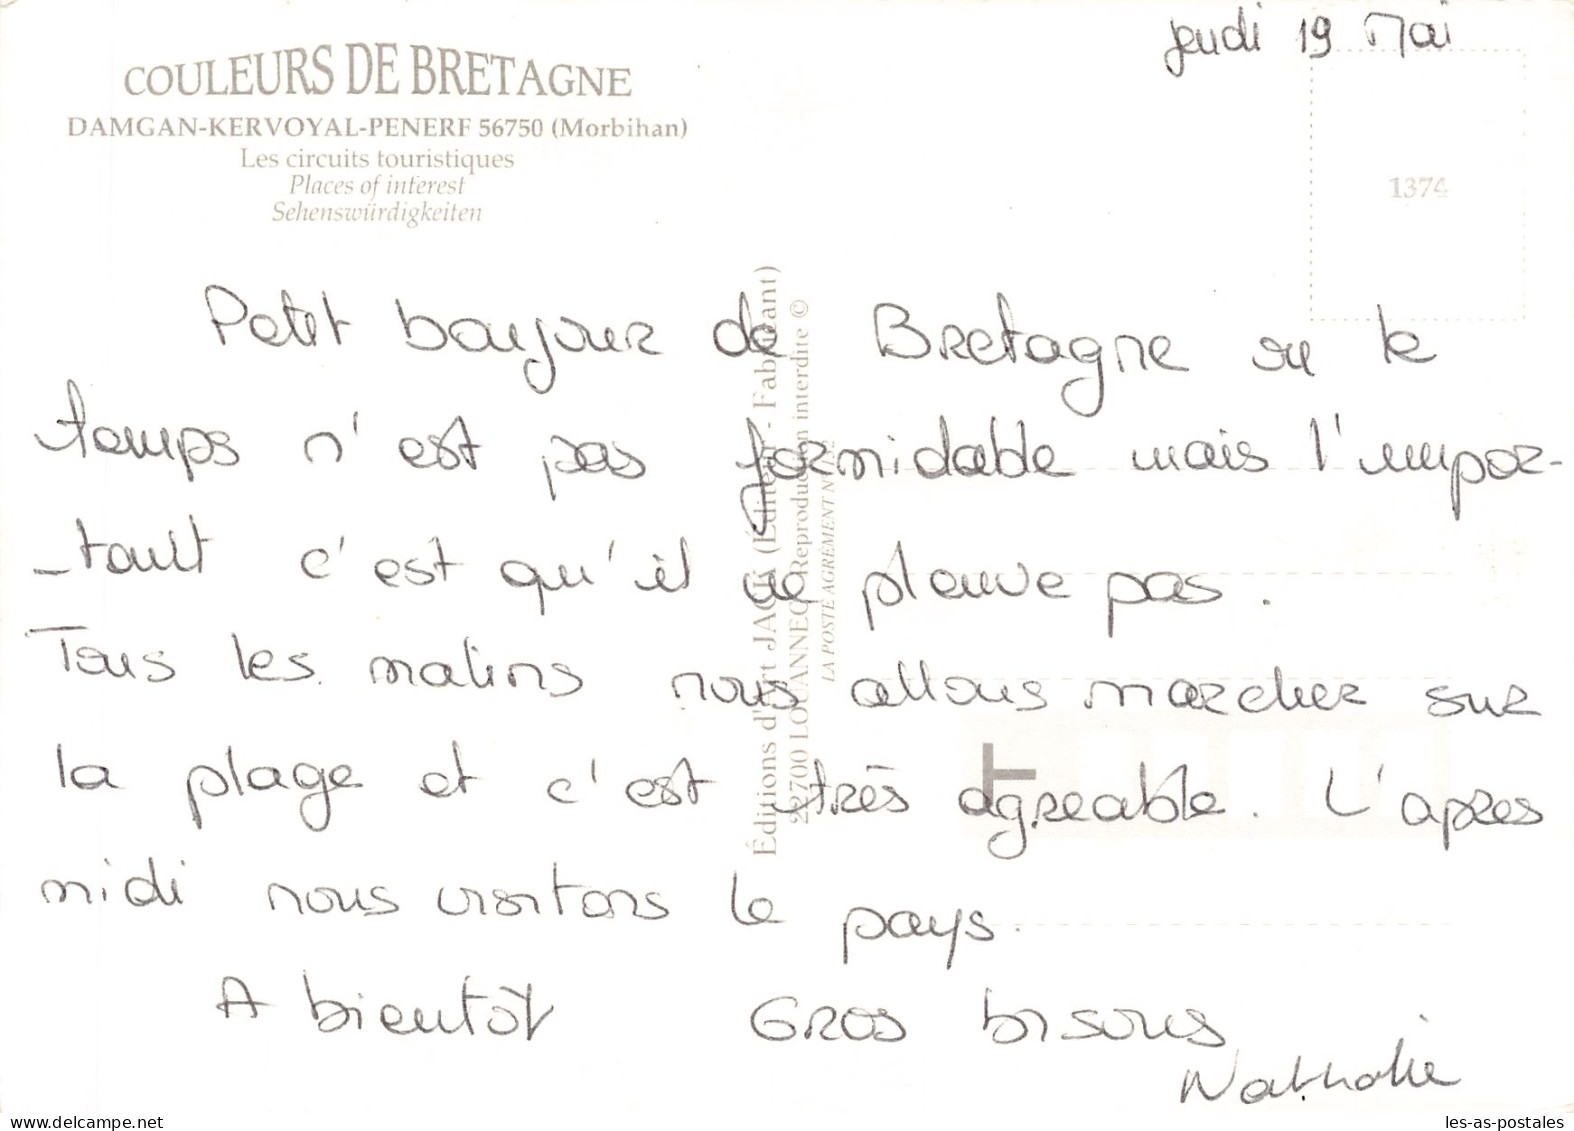 Jeudi 19 Mai
COULEURS DE BRETAGNE
DAMGAN-KERVOYAL-PENERF 56750 (Morbihan)
Les circuits touristiques
Places of interest
Sehenswürdigkeiten
1374
Petit boujour de Bretagne ou le
temps n'est pas formidable mais l'impor-
-tant c'est qu'il ne pleuve pas.
Tous les matins nous allons marcher sur
la plage et c'est très agreable. L'apres
midi nous visitons le pays.
A bientôt Gros bisous
Nathalie
Éditions d'Art JACK (Éditeur - Fabricant)
22700 LOUANNEC Reproduction interdite ©
LA POSTE AGRÉMENT N°
les-as-postales